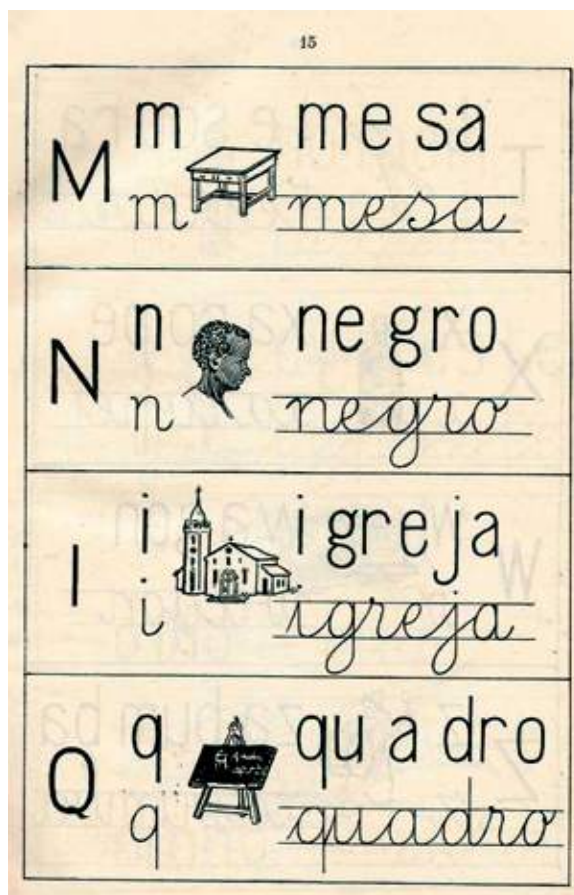 15
M m me sa
m mesa
N n ne gro
n negro
I i i gre ja
i igreja
Q q qu a dro
q quadro